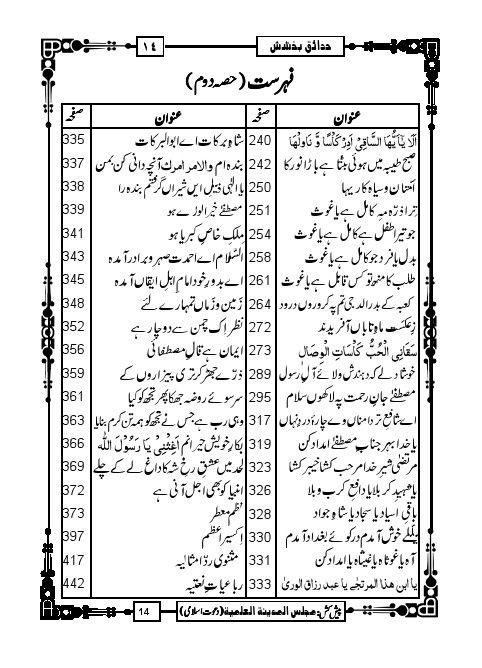 حدائق بخشش
١٤
فہرست (حصہ دوم)
عنوان صفحہ عنوان صفحہ
اَلَا یٰۤاَیُّهَا السَّاقِیْ اَدِرْ كَاْسًا وَّ نَاوِلْهَا 240 شاہِ برکات اے ابوالبرکات 335
صبح طیبہ میں ہوئی بٹتا ہے باڑا نور کا 242 بندہ ام والامر امرک آنچہ دانی کن بمن 337
امتان و سیاہ کاریہا 250 یا الٰہی ذیل ایں شیراں گرفتم بندہ را 338
ترا ذرّہ مہِ کامل ہے یا غوث 251 مصطفےٰ خیر الورٰے ہو 339
جو تیرا طفل ہے کامل ہے یا غوث 254 ملکِ خاصِ کبریا ہو 341
بدل یا فرد جو کامل ہے یا غوث 258 السّلام اے احمدت صہر و برادر آمدہ 343
طلب کا منھ تو کس قابل ہے یا غوث 261 اے بدورِ خود امامِ اہلِ ایقاں آمدہ 345
کعبہ کے بدر الدجی تم پہ کروروں درود 264 زمین و زماں تمہارے لئے 348
زِ عکست ماہِ تاباں آفریدند 272 نظر اِک چمن سے دوچار ہے 352
سَقَانِی الْحُبُّ كَاْسَاتِ الْوِصَالِ 273 ایمان ہے قالِ مصطفائی 356
خوشا دلے کہ دہندش ولائے آلِ رسول 289 ذرّے جھڑ کر تری پیزاروں کے 359
مصطفےٰ جانِ رحمت پہ لاکھوں سلام 295 سر سوئے روضہ جھکا پھر تجھ کو کیا 361
اے شافعِ تر دامناں وے چارۂ دردِ نہاں 317 وہی رب ہے جس نے تجھ کو ہمہ تن کرم بنایا 363
یا خدا بہرِ جنابِ مصطفےٰ امداد کن 319 بکارِ خویش حیرانم اَغِثْنِیْ یَا رَسُوْلَ اللّٰہ 366
مرتضیٰ شیرِ خدا مرحب کشا خیبر کشا 323 لحد میں عشقِ رُخِ شہ کا داغ لے کے چلے 369
یا شہیدِ کربلا یا دافعِ کرب و بلا 326 انبیا کو بھی اجل آنی ہے 372
باقی اسیاد یا سجاد یا شاہِ جواد 328 نظمِ معطر 373
بللے خوش آمدم در کوئے بغداد آمدم 330 اکسیرِ اعظم 397
آہ یا غوثاہ یا غیثاہ یا امداد کن 331 مثنوی ردّ امثالیہ 417
یا ابن ھذا المرتجے یا عبد رزاق الوریٰ 333 رباعیاتِ نعتیہ 442
پیش کش: مجلس المدینۃ العلمیۃ (دعوتِ اسلامی)
14